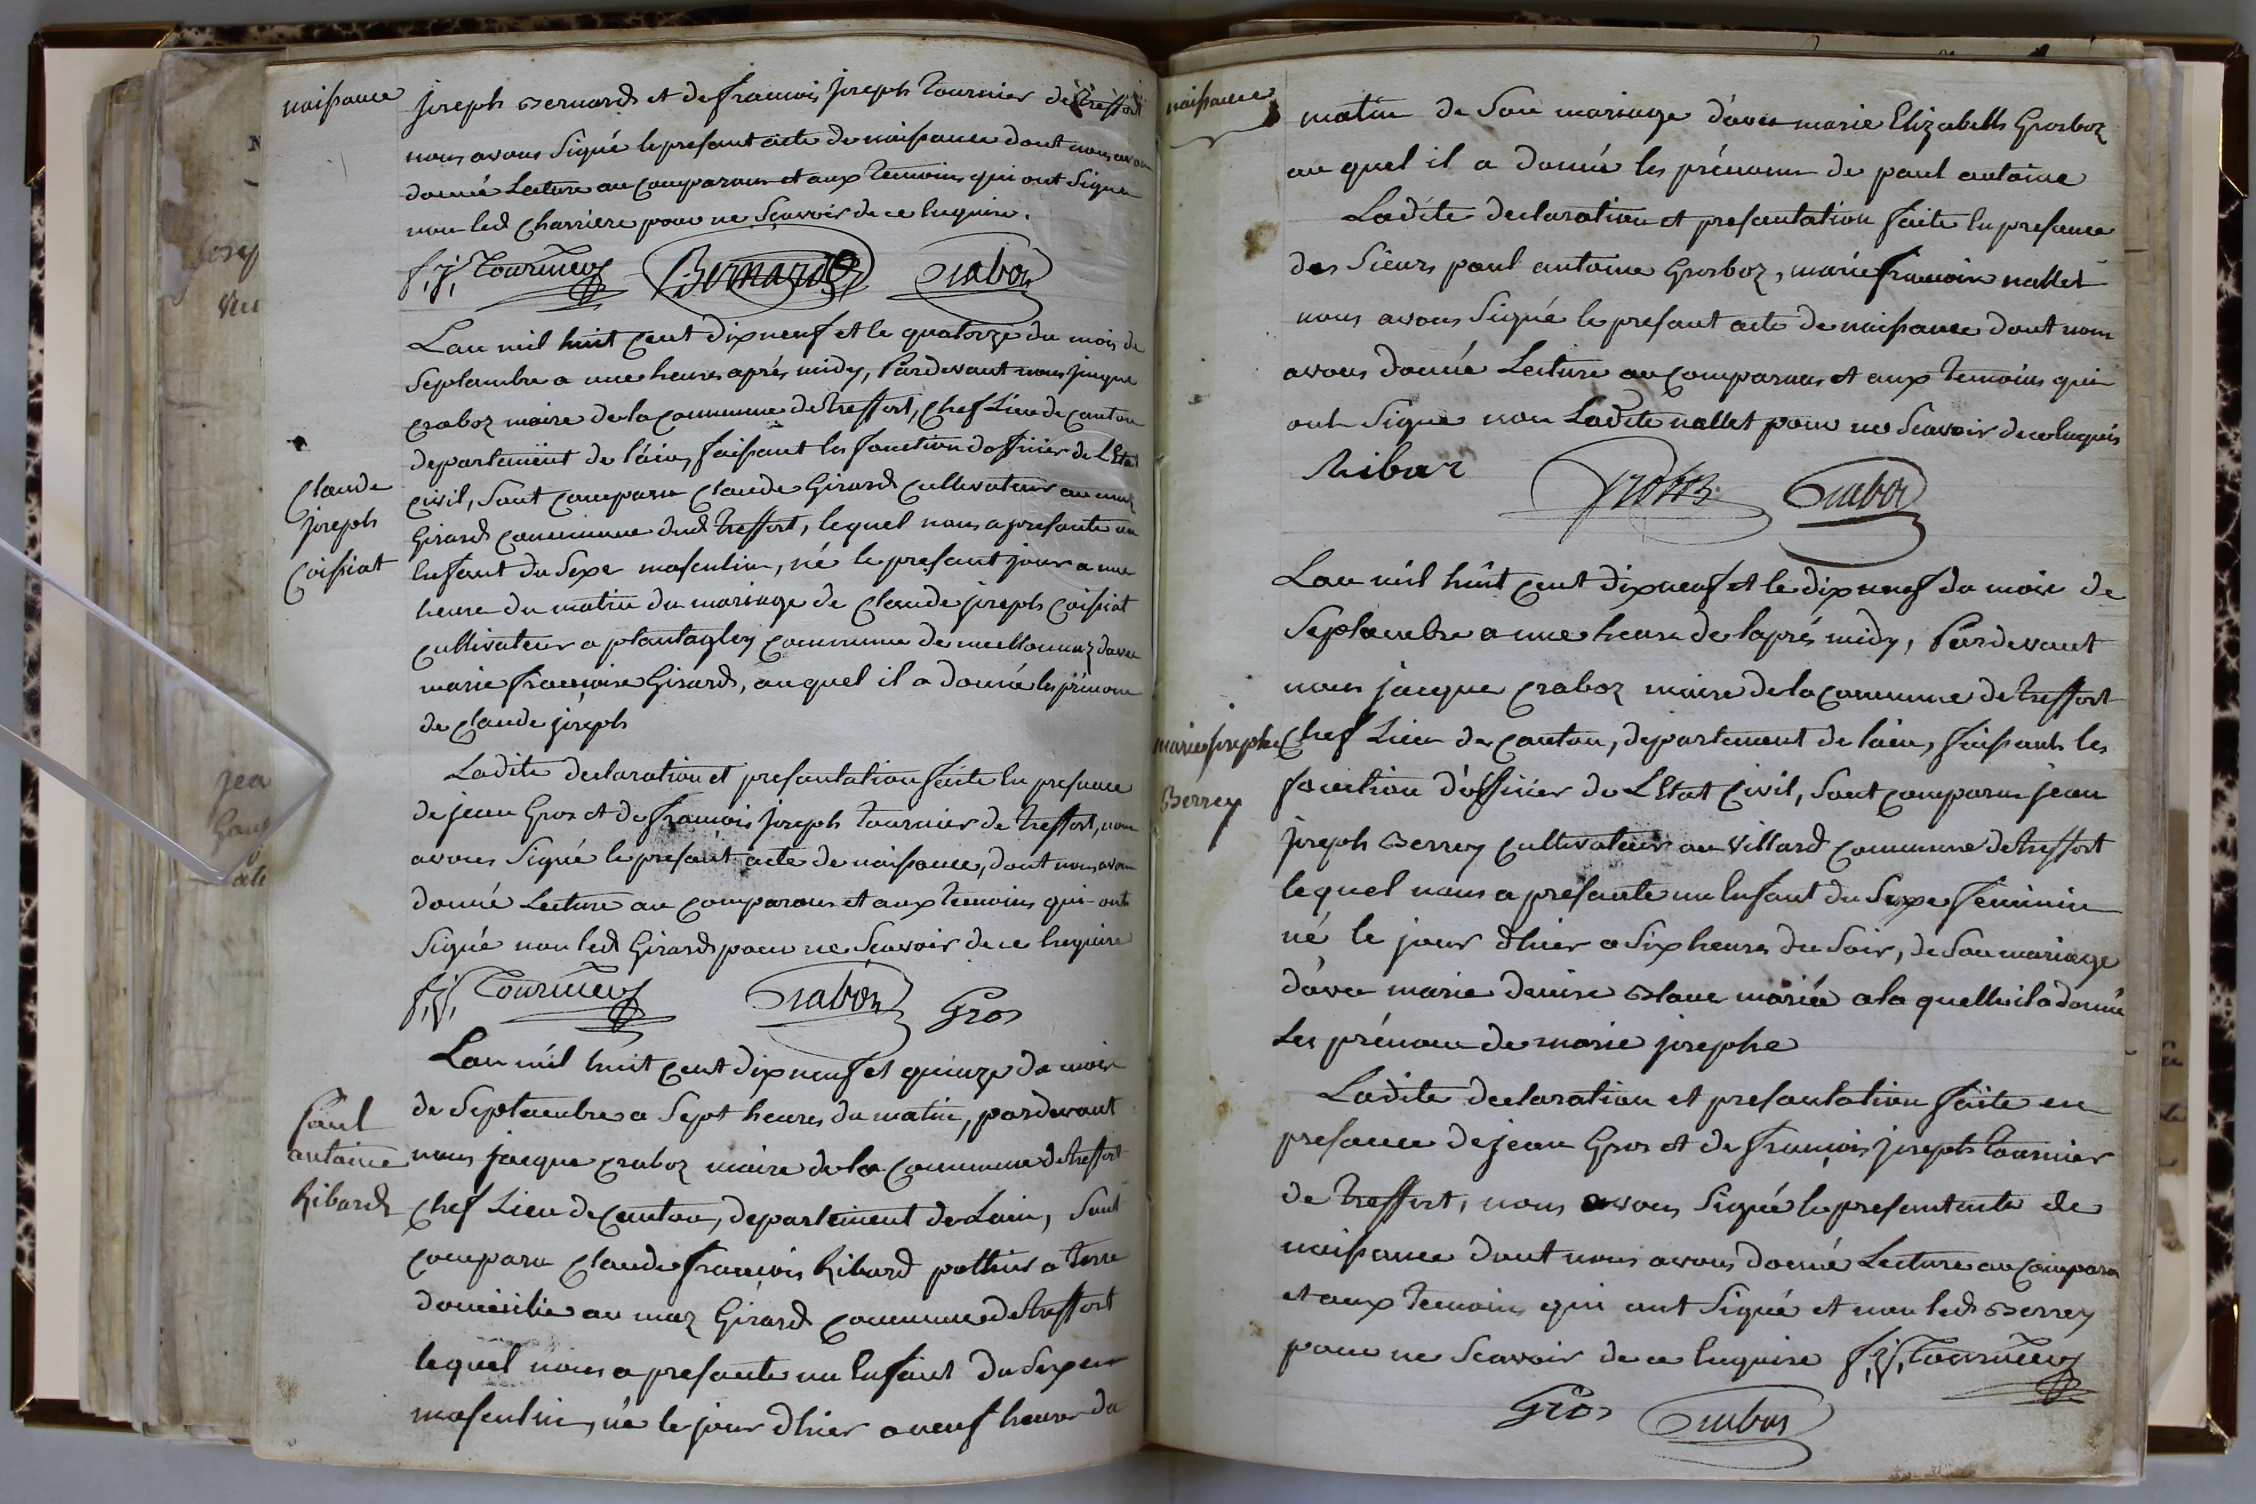 naissance
joseph Bernard et de francois joseph tournier de treffort
nous avons Signé le presant acte de naissance dont nous avons
donné Lecture au comparant et aux temoins qui ont Signé
non led charriere pour ne Scavoir de ce Enquis.
f, j, Tournier Bernard Craboz
Lan mil huit cent dixneuf et le quatorze du mois de
Septambre a une heures après midy, Pardevant nous jacque
craboz maire de la commune de treffort, chef Lieu de canton
departement de l'ain, faisant les fonction dofficier de L'Etat
civil, Sont comparu claude Girard cultivateur au maz
Girard commune dud treffort, lequel nous a presanté un
Enfant du Sexe masculin, né le presant jour a une
heure du matin du mariage de claude joseph coissiat
cultivateur a plantagley commune de meillonnaz davec
marie francoise Girard, au quel il a donné les prénoms
de claude joseph
claude
joseph
Coissiat
Ladite declaration et presantation faite En presance
de jean Gros et de francois joseph tournier de treffort, nous
avons Signé le presant acte de naissance, dont nous avons
donné Lecture au comparans et aux temoins qui ont
Signé non led Girard pour ne Scavoir de ce Enquire
f, j, Tournier Craboz Gros
Lan mil huit cent dix neuf et quinze du mois
de Septambre a Sept heures du matin, pardevant
nous jacque craboz maire de la commune de treffort
chef Lieu de canton, departement de Lain, Sont
comparu claude francois Ribard pottier a terre
domicilié au maz Girard commune de treffort
lequel nous a presanté un Enfant du Sexe
masculin, né le jour dhier a neuf heures du
Paul
antoine
Ribard
naissance
matin de Son mariage d'avec marie Elizabeth Grosboz
au quel il a donné les prénoms de paul antoine
Ladite declaration et presantation faite En presance
des Sieurs paul antoine Grosboz, marie francoise nallet
nous avons Signé le presant acte de naissance dont nous
avons donné Lecture au comparans et aux temoins qui
ont Signé non Ladite nallet pour ne Scavoir de ce Enquis
Ribar Craboz
Lan mil huit cent dixneuf et le dix neuf du mois de
Septambre a une heure de laprés midy, Pardevant
nous jacque craboz maire de la commune de treffort
chef Lieu de canton, departement de lain, faisant les
fonction d'officier de L'Etat Civil, Sont comparu jean
joseph Berrey cultivateur au Villard commune de treffort
lequel nous a presanté un Enfant du Sexe feminin
né le jour dhier a Six heures du Soir, de Son mariage
d'avec marie denise Blanc mariée a la quelle il a donné
Les prénoms de marie josephe
marie josephe
Berrey
Ladite declaration et presantation faite en
presance de jean Gros et de francois joseph tournier
de treffort, nous avons Signé le presant acte de
naissance dont nous avons donné Lecture au compara
et aux temoins qui ont Signé et non led Berrey
pour ne Scavoir de ce Enquire f, j, Tournier
Gros Craboz